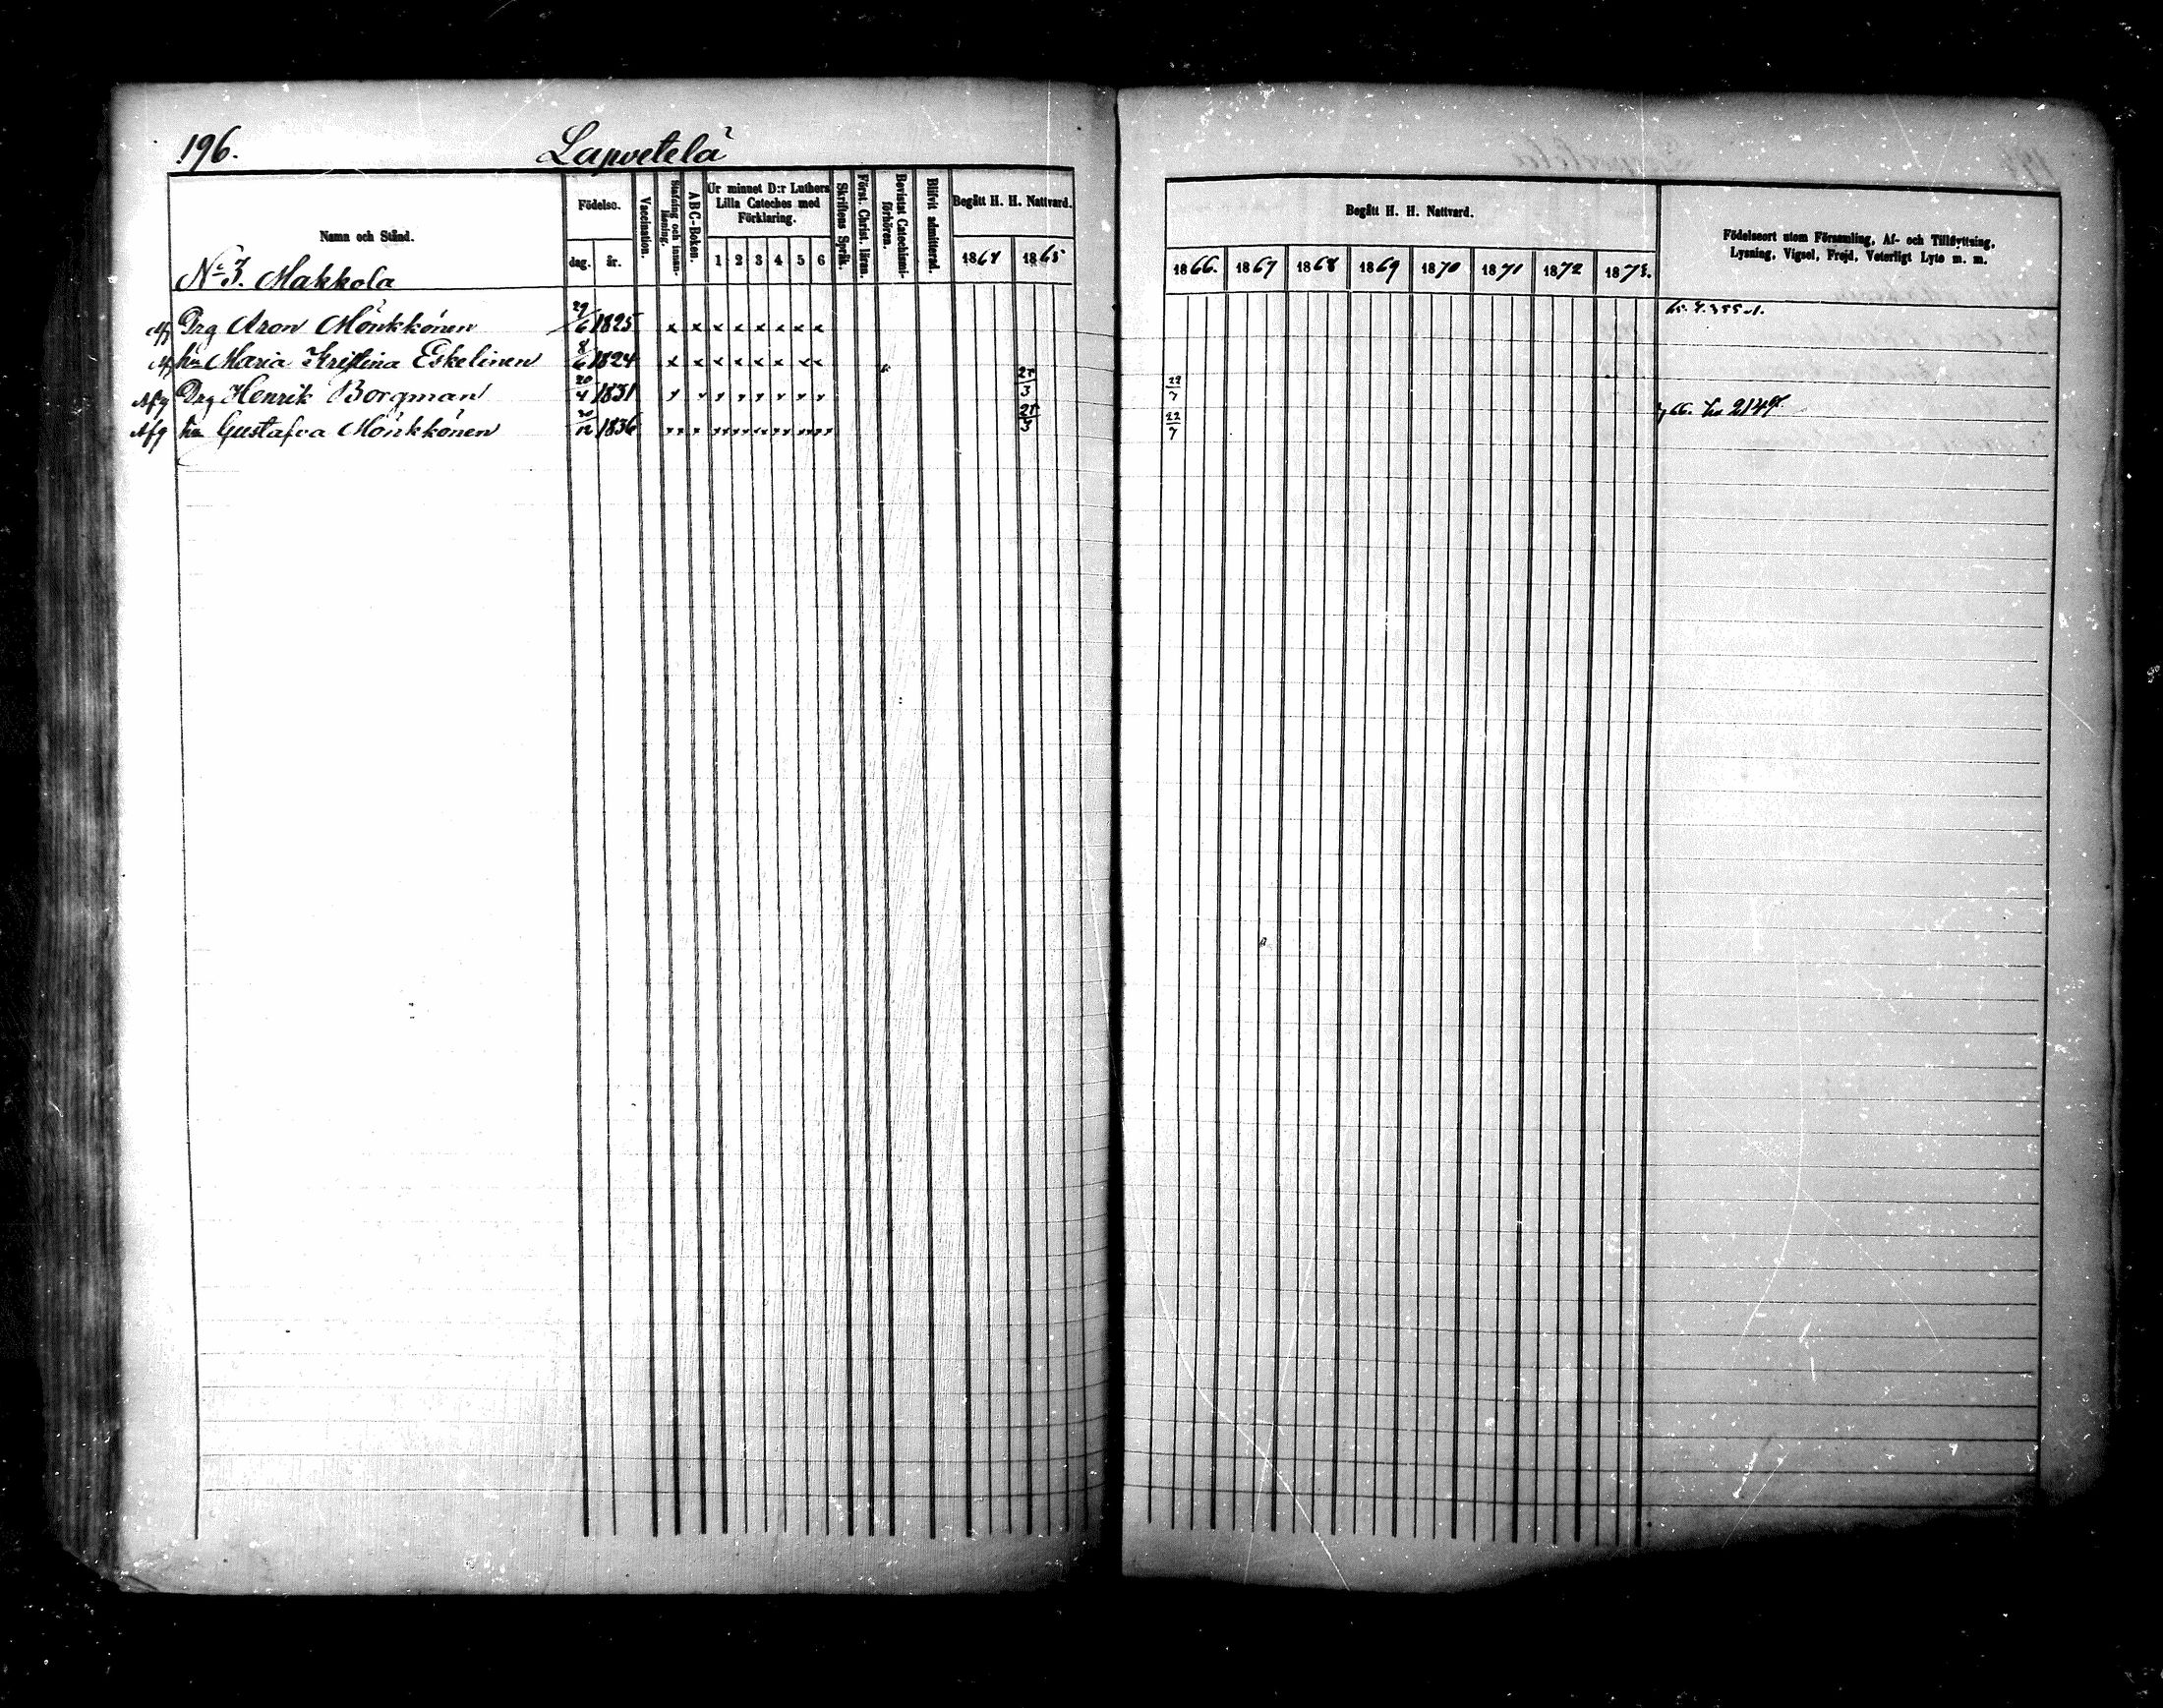 196. Lapvetelä
Namn och Stånd.
Födelse.
dag. år.
Vaccination.
Stafning och innan-läsning.
ABC-Boken.
Ur minnet D:r Luthers
Lilla Cateches med
Förklaring.
1 2 3 4 5 6
Skriftens Språk.
Först. Christ. läran.
Bevistat Catechismi-förhören.
Blifvit admitterad.
Begått H. H. Nattvard.
1864 1865
Begått H. H. Nattvard.
1866. 1867 1868 1869 1870 1871 1872 1873.
Födelseort utom Församling, Af- och Tillflyttning,
Lysning, Vigsel, Frejd, Veterligt Lyte m. m.
No 3. Makkola
Drg Aron Mönkkönen 29/6 1825 x x x x x x x x
hu Maria Kristina Eskelinen 8/6 1824 x x x x x x x x
Afg Drg Henrik Borgman 20/4 1831 25/3 22/7
Afg hu Gustafva Mönkkönen 20/12 1836 25/3 22/7 66. 214